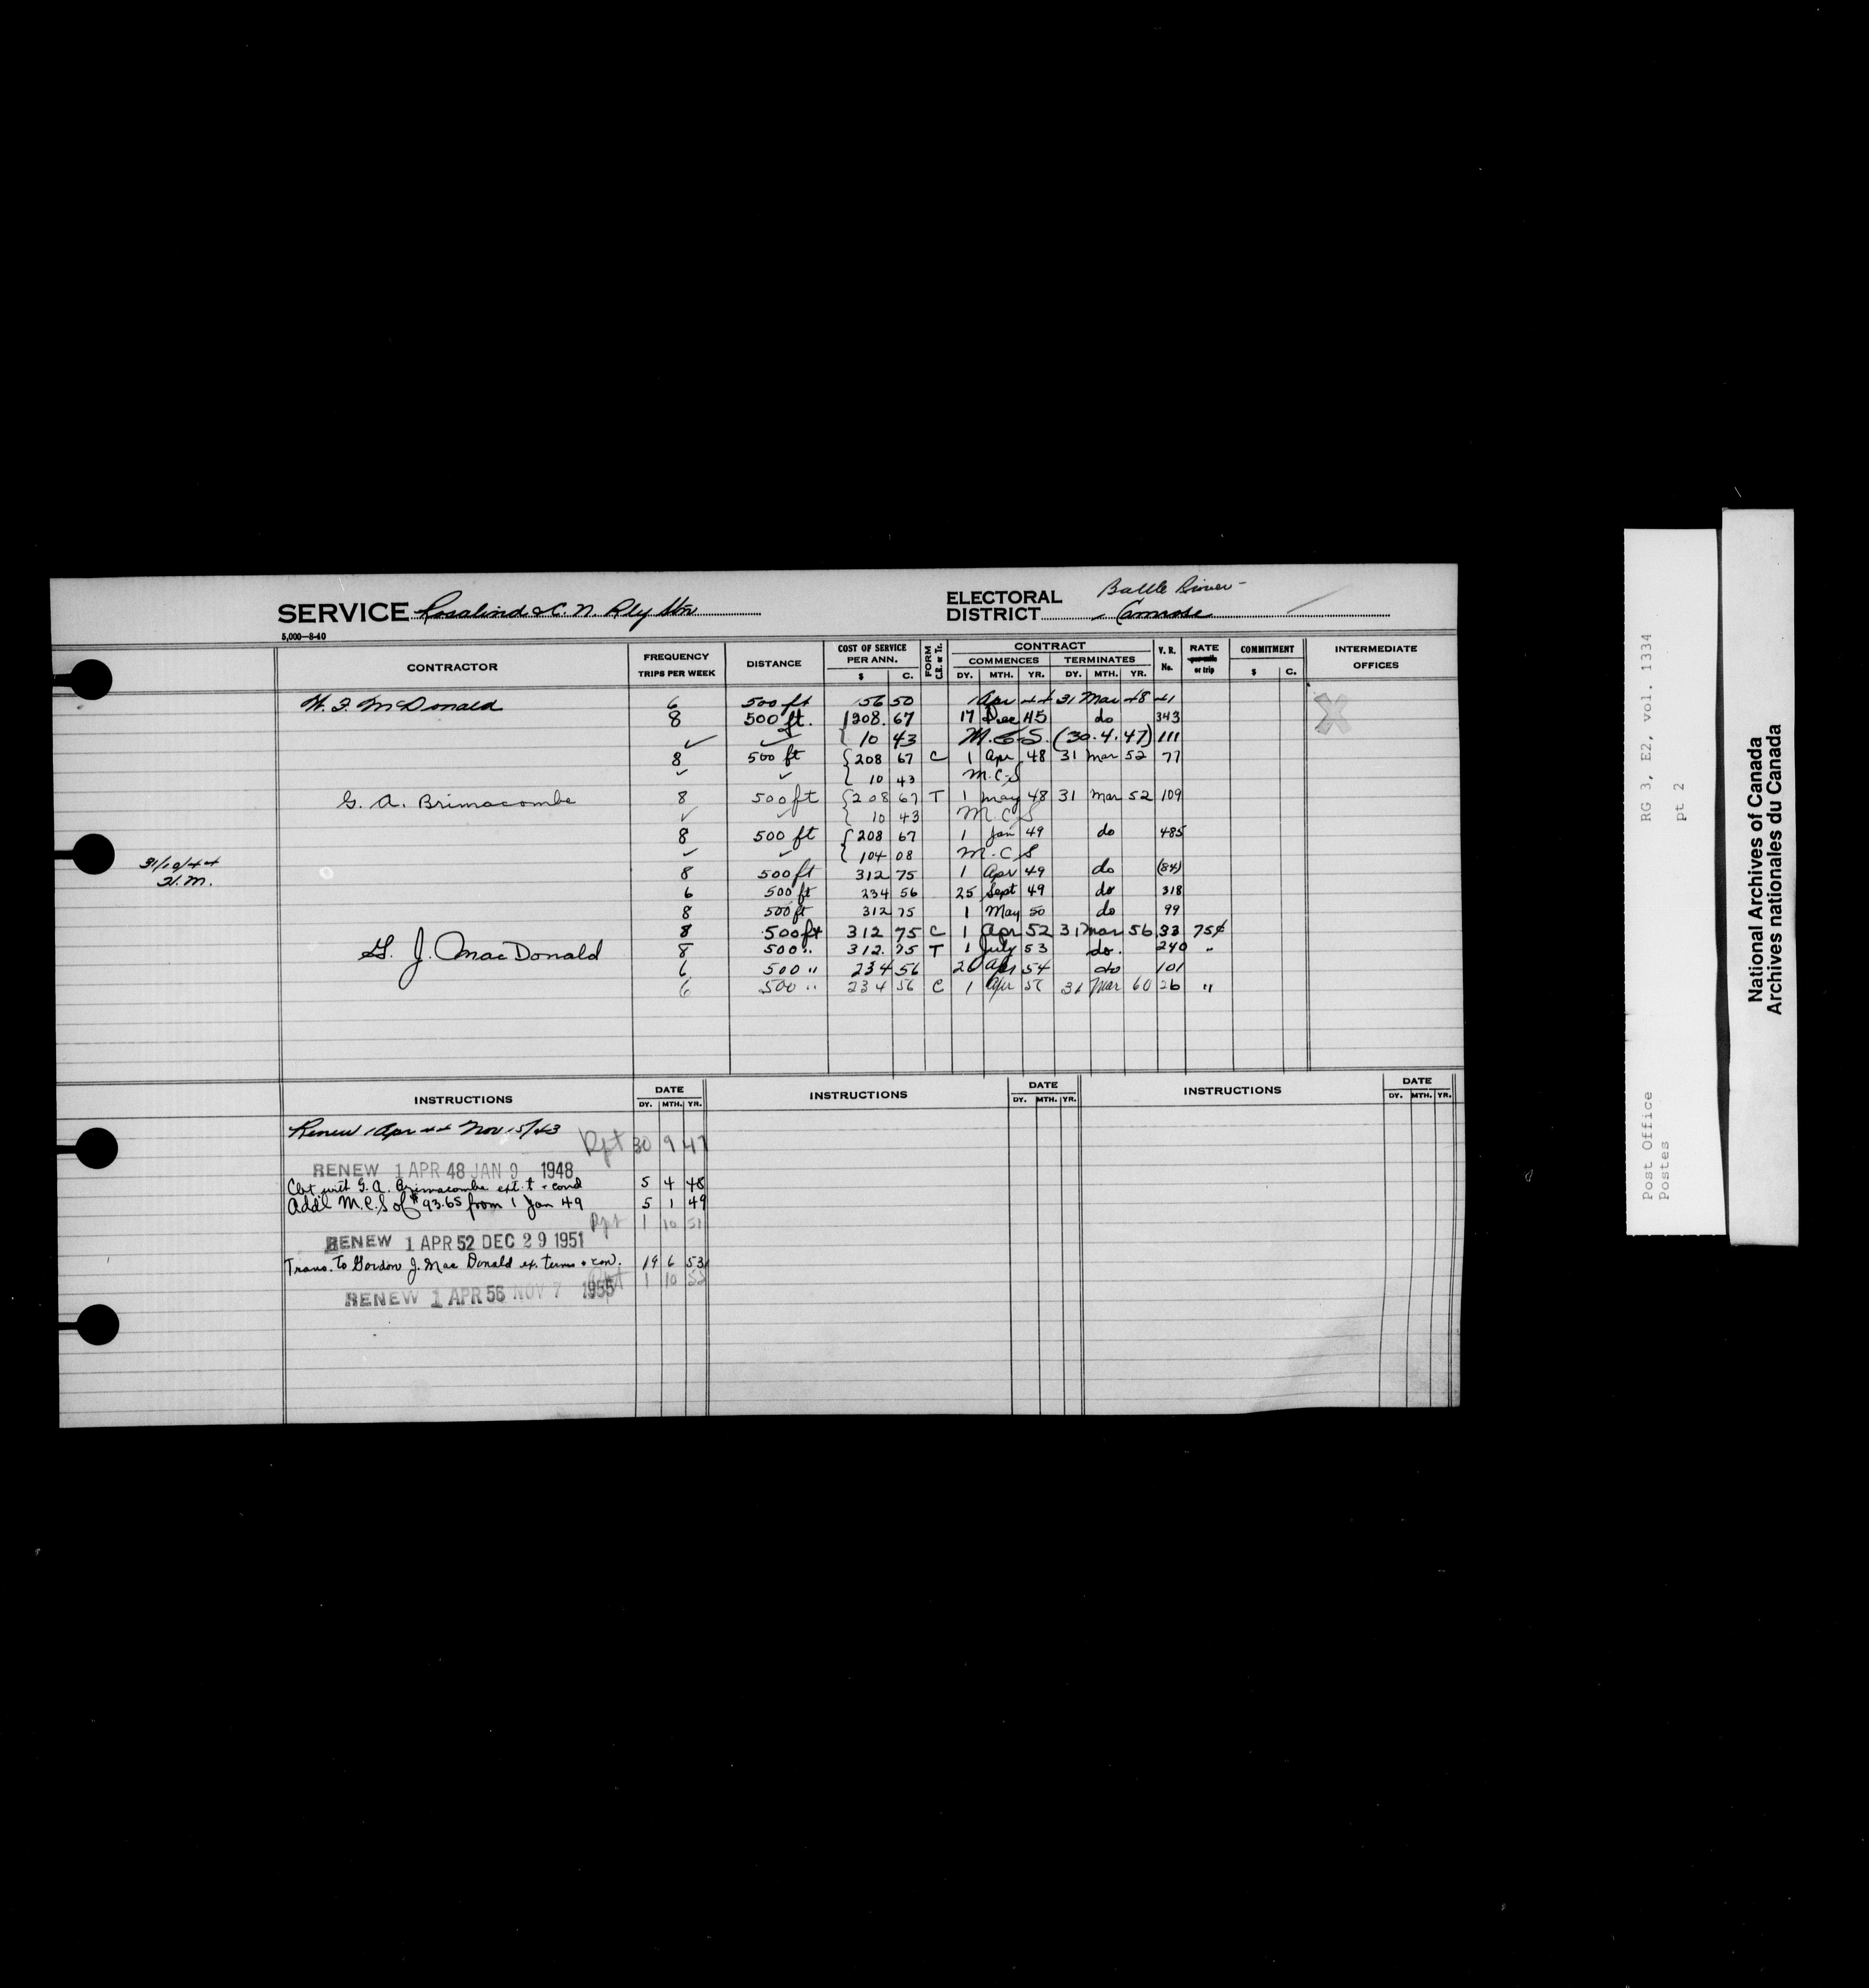 SERVICE Rosalind & C. N. Rly Stn
5,000—8-40
ELECTORAL DISTRICT Battle River - Camrose
CONTRACTOR FREQUENCY TRIPS PER WEEK DISTANCE COST OF SERVICE PER ANN. $ C. FORM C.R. or Tr. CONTRACT COMMENCES DY. MTH. YR. TERMINATES DY. MTH. YR. V. R. No. RATE per mile or trip COMMITMENT $ C. INTERMEDIATE OFFICES
W. F. McDonald 6 500 ft 56 50 1 Apr 44 31 Mar 48 41 X
8 500 ft. 208.67 17 Dec 45 do 343
✓ ✓ 10 43 M.C.S. (30.4.47) 111
8 500 ft 208 67 C 1 Apr 48 31 Mar 52 77
✓ ✓ 10 43 M.C.S
G. A. Brimacombe 8 500 ft 208 67 T 1 May 48 31 Mar 52 109
✓ ✓ 10 43 M.C.S
8 500 ft 208 67 1 Jan 49 do 485
✓ ✓ 104 08 M.C.S
31/10/44
H.M.
8 500 ft 312 75 1 Apr 49 do (84)
6 500 ft 234 56 25 Sept 49 do 318
8 500 ft 312 75 1 May 50 do 99
8 500 ft 312 75 C 1 Apr 52 31 Mar 56 33 75¢
G. J. MacDonald 8 500 " 312.75 T 1 July 53 do. 240 "
6 500 " 234 56 26 Apr 54 do 101
6 500 " 234 56 C 1 Apr 56 31 Mar 60 26 "
INSTRUCTIONS DATE DY. MTH. YR. INSTRUCTIONS DATE DY. MTH. YR. INSTRUCTIONS DATE DY. MTH. YR.
Renew 1 Apr 44 Nov. 15/43
Rpt 30 9 47
RENEW 1 APR 48 JAN 9 1948
Cbt with G. A. Brimacombe ext. t + cond 5 4 48
Addl M.C.S of $93.65 from 1 Jan 49 5 1 49
Rpt 1 10 51
RENEW 1 APR 52 DEC 29 1951
Trans. to Gordon J. Mac Donald ex. terms + con. 19 6 53
Rpt 1 10
RENEW 1 APR 56 NOV 7 1955
RG 3, E2, vol. 1334
pt 2
Post Office
Postes
National Archives of Canada
Archives nationales du Canada